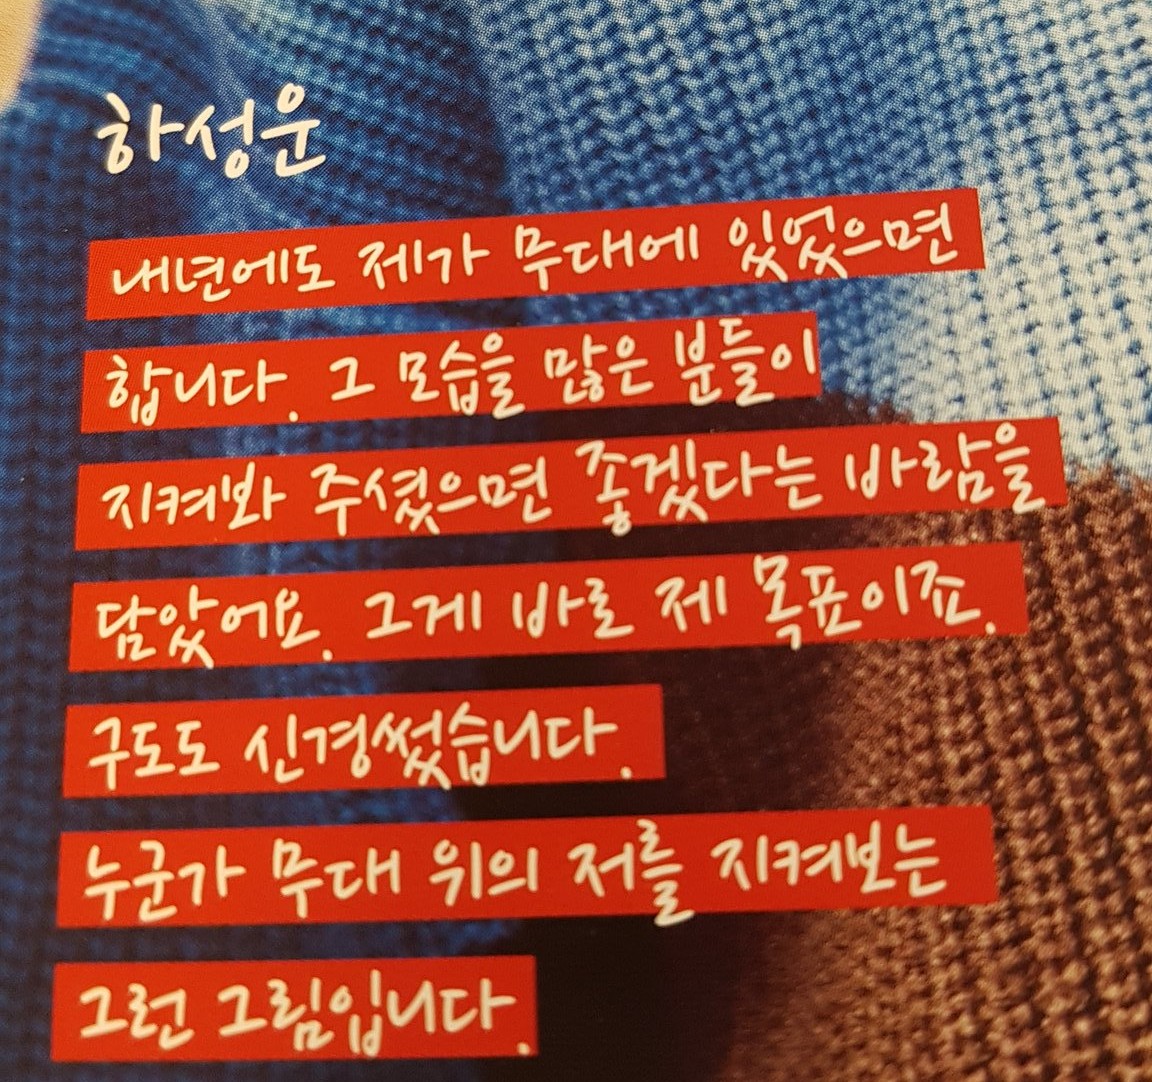 하성운
내년에도 제가 무대에 있었으면
합니다. 그 모습을 많은 분들이
지켜봐 주셨으면 좋겠다는 바람을
담았어요. 그게 바로 제 목표이죠.
구도도 신경썼습니다.
누군가 무대 위의 저를 지켜보는
그런 그림입니다.